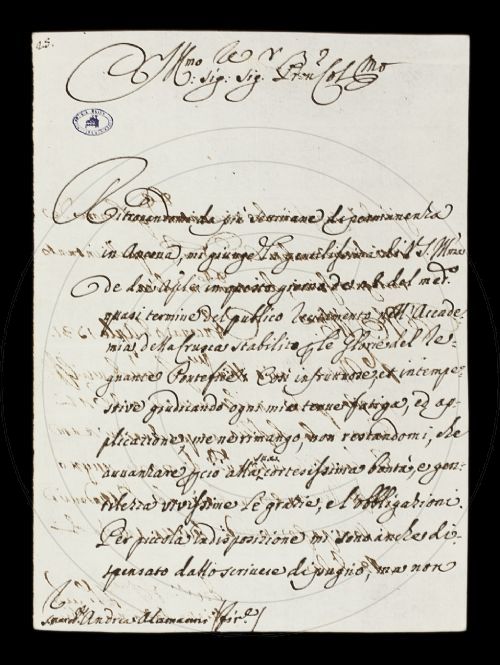 28.
Ill.mo Sig.r Sig.r Pron Col.mo
Ritrovandomi da più settimane di permanenza
in Ancona, mi giunge la gentilissima di V. S. Ill.ma
de dieci imposto giorno de del med.o
quasi termine del publico recitamento nell'Accade-
mia della Crusca stabilito p le Glorie del Re-
gnante Pontefice: Così infruttuose, et intempe-
stive giudicando ogni mia tenue fatiga, ed ap-
plicazione, me ne rimango, non restandomi, che
avvanzare p ciò alla sua cortesissima bontà, e gen-
tilezza vivissime le grazie, e l'obbligazioni.
Per piccola indisposizione mi sono anche di-
spensato dallo scrivere di pugno, ma non
Andrea Alamanni Fir.e